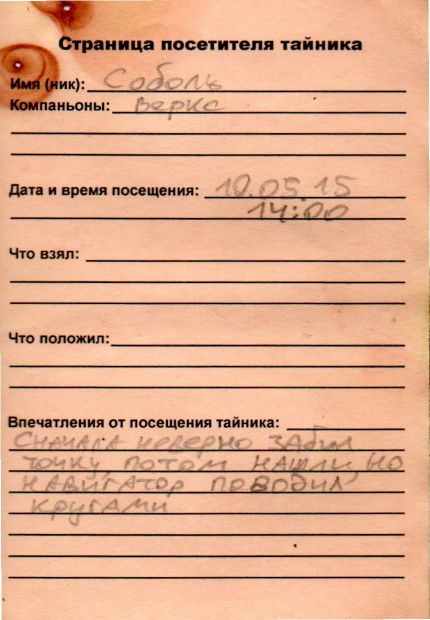 Страница посетителя тайника
Имя (ник): Соболь
Компаньоны: Верка
Дата и время посещения: 10.05.15
14:00
Что взял:
Что положил:
Впечатления от посещения тайника:
Сначала неверно забил
точку, потом нашли, но
навигатор поводил
кругами